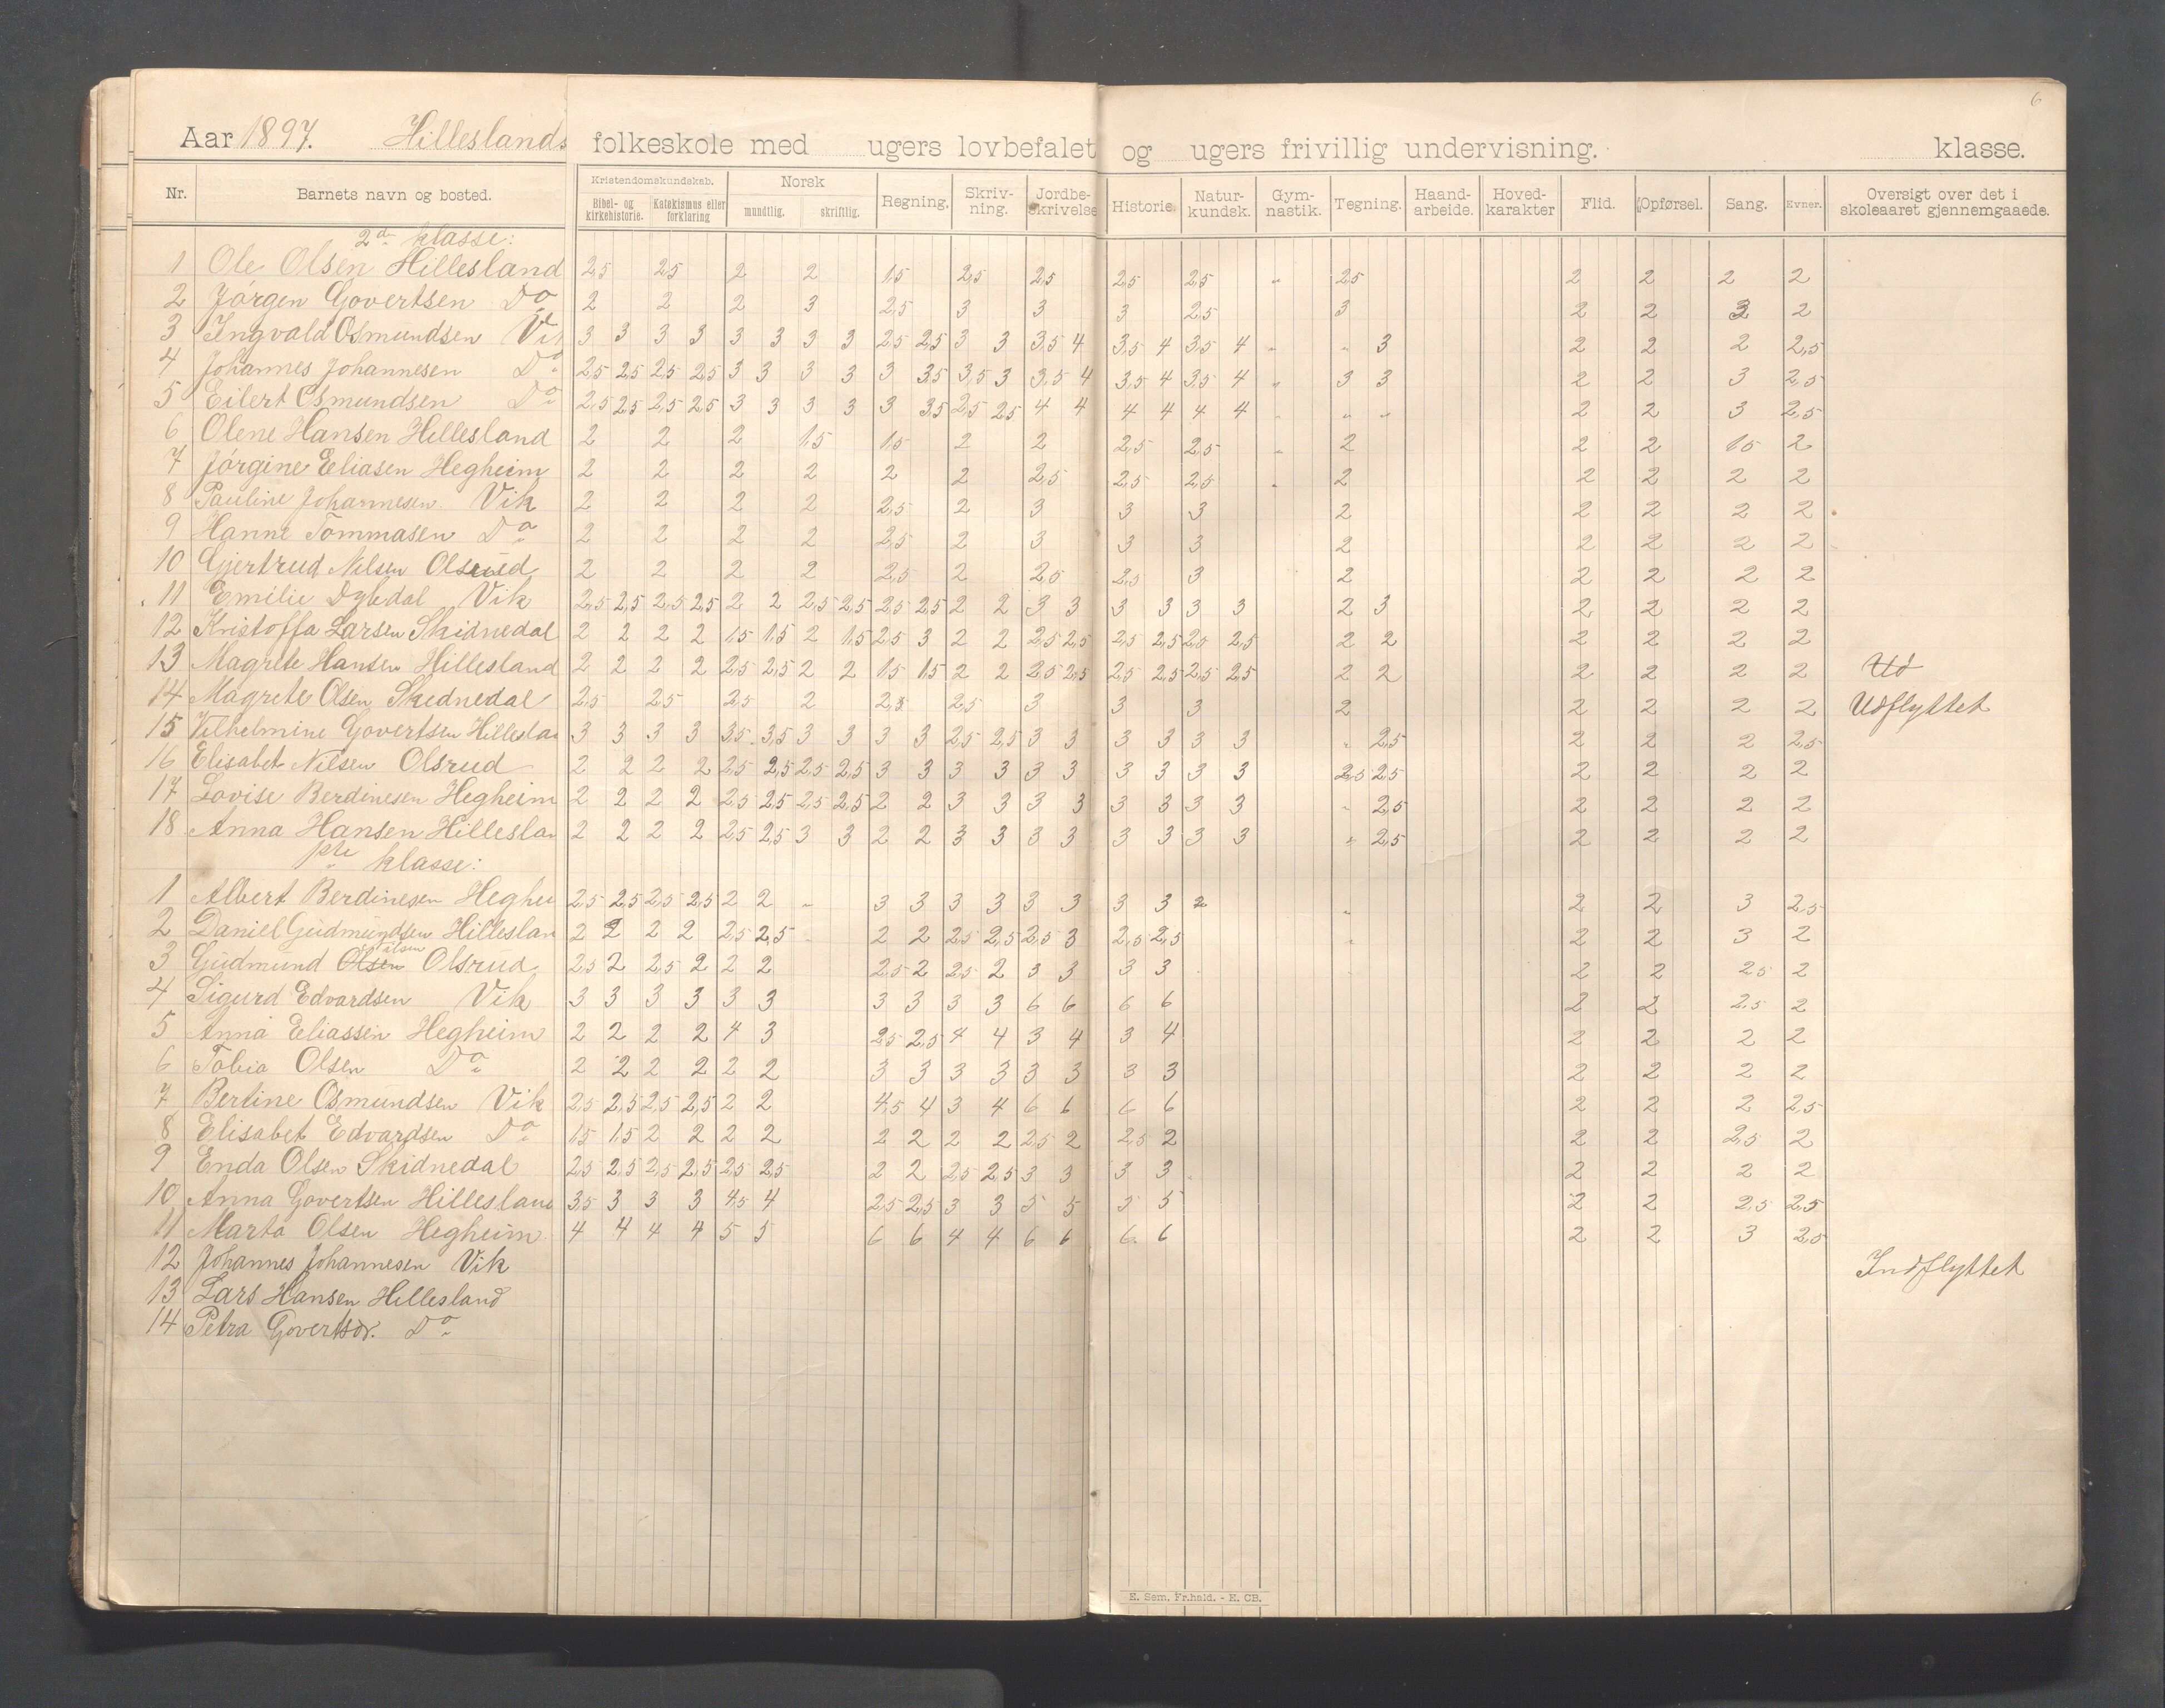 6
Aar 1897. Hilleslands folkeskole med ugers lovbefalet og ugers frivillig undervisning. klasse.
Nr. Barnets navn og bosted. Kristendomskundskab. Bibel- og kirkehistorie. Katekismus eller forklaring Norsk mundtlig. skriftlig. Regning. Skriv-ning. Jordbe-skrivelse Historie. Natur-kundsk. Gym-nastik. Tegning. Haand-arbeide. Hoved-karakter Flid. Opførsel. Sang. Evner. Oversigt over det i skoleaaret gjennemgaaede.
2den klasse:
1 Ole Olsen Hillesland 2,5 2,5 2 2 1,5 2,5 2,5 2,5 2,5 " 2,5 2 2 2 2
2 Jørgen Govertsen Do 2 2 2 3 2,5 3 3 3 2,5 3 2 2 3 2
3 Ingvald Osmundsen Vik 3 3 3 3 3 3 3 3 2,5 2,5 3 3 3,5 4 3,5 4 3,5 4 " " 3 2 2 2 2,5
4 Johannes Johannesen Do 2,5 2,5 2,5 2,5 3 3 3 3 3 3,5 3,5 3 3,5 4 3,5 4 3,5 4 " 3 3 2 2 3 2,5
5 Eilert Osmundsen Do 2,5 2,5 2,5 2,5 3 3 3 3 3 3,5 2,5 2,5 4 4 4 4 4 4 " " " 2 2 3 2,5
6 Olene Hansen Hillesland 2 2 2 1,5 1,5 2 2 2,5 2,5 " 2 2 2 1,5 2
7 Jørgine Eeliasen Hegheim 2 2 2 2 2 2 2,5 2,5 2,5 " 2 2 2 2 2
8 Pauline Johannesen Vik 2 2 2 2 2,5 2 3 3 3 2 2 2 2 2
9 Hanne Tommasen Do 2 2 2 2 2,5 2 3 3 3 2 2 2 2 2
10 Gjertrud Nilsen Olsrud 2 2 2 2 2,5 2 2,5 2,5 3 2 2 2 2 2
11 Emilie Dybdal Vik 2,5 2,5 2,5 2,5 2 2 2,5 2,5 2,5 2,5 2 2 3 3 3 3 3 3 2 3 2 2 2 2
12 Kristoffa Larsen Skidnedal 2 2 2 2 1,5 1,5 2 1,5 2,5 3 2 2 2,5 2,5 2,5 2,5 2,5 2,5 2 2 2 2 2 2
13 Magrete Hansen Hillesland 2 2 2 2 2,5 2,5 2 2 1,5 1,5 2 2 2,5 2,5 2,5 2,5 2,5 2,5 2 2 2 2 2 2 Ud
14 Magrete Olsen Skidnedal 2,5 2,5 2,5 2 2,5 2,5 3 3 3 2 2 2 2 2 Udflyttet
15 Vilhelmine Govertsen Hilleslan 3 3 3 3 3,5 3,5 3 3 3 3 2,5 2,5 3 3 3 3 3 3 " 2,5 2 2 2 2,5
16 Elisabet Nilsen Olsrud 2 2 2 2 2,5 2,5 2,5 2,5 3 3 3 3 3 3 3 3 3 3 2,5 2,5 2 2 2 2
17 Lovise Berdinesen Hegheim 2 2 2 2 2,5 2,5 2,5 2,5 2 2 3 3 3 3 3 3 3 3 " 2,5 2 2 2 2
18 Anna Hansen Hilleslan 2 2 2 2 2,5 2,5 3 3 2 2 3 3 3 3 3 3 3 3 " 2,5 2 2 2 2
1ste klasse:
1 Albert Berdinesen Heghei 2,5 2,5 2,5 2,5 2 2 " 3 3 3 3 3 3 3 3 " " 2 2 3 2,5
2 Daniel Gudmundsen Hilleslan 2 2 2 2 2,5 2,5 2 2 2,5 2,5 2,5 3 2,5 2,5 " 2 2 3 2
3 Gudmund Olsen Nilsen Olsrud 2,5 2 2,5 2 2 2 2,5 2 2,5 2 3 3 3 3 2 2 2,5 2
4 Sigurd Edvardsen Vik 3 3 3 3 3 3 3 3 3 3 6 6 6 6 2 2 2,5 2
5 Anna Eliassen Hegheim 2 2 2 2 4 3 2,5 2,5 4 4 3 4 3 4 2 2 2 2
6 Tobia Olsen Do 2 2 2 2 2 2 3 3 3 3 3 3 3 3 2 2 2 2
7 Bertine Osmundsen Vik 2,5 2,5 2,5 2,5 2 2 4,5 4 3 4 6 6 6 6 2 2 2 2,5
8 Elisabet Edvardsen Do 1,5 1,5 2 2 2 2 2 2 2 2 2,5 2 2,5 2 2 2 2,5 2
9 Enda Olsen Skidnedal 2,5 2,5 2,5 2,5 2,5 2,5 2 2 2,5 2,5 3 3 3 3 2 2 2 2
10 Anna Govertsen Hillesland 3,5 3 3 3 4,5 4 2,5 2,5 3 3 5 5 5 5 2 2 2,5 2,5
11 Marta Olsen Hegheim 4 4 4 4 5 5 6 6 4 4 6 6 6 6 2 2 3 2,5
12 Johannes Johannesen Vik Indflyttet
13 Lars Hansen Hillesland
14 Petra Govertsdr. Do
E. Sem, Fr.hald. - E. CB.